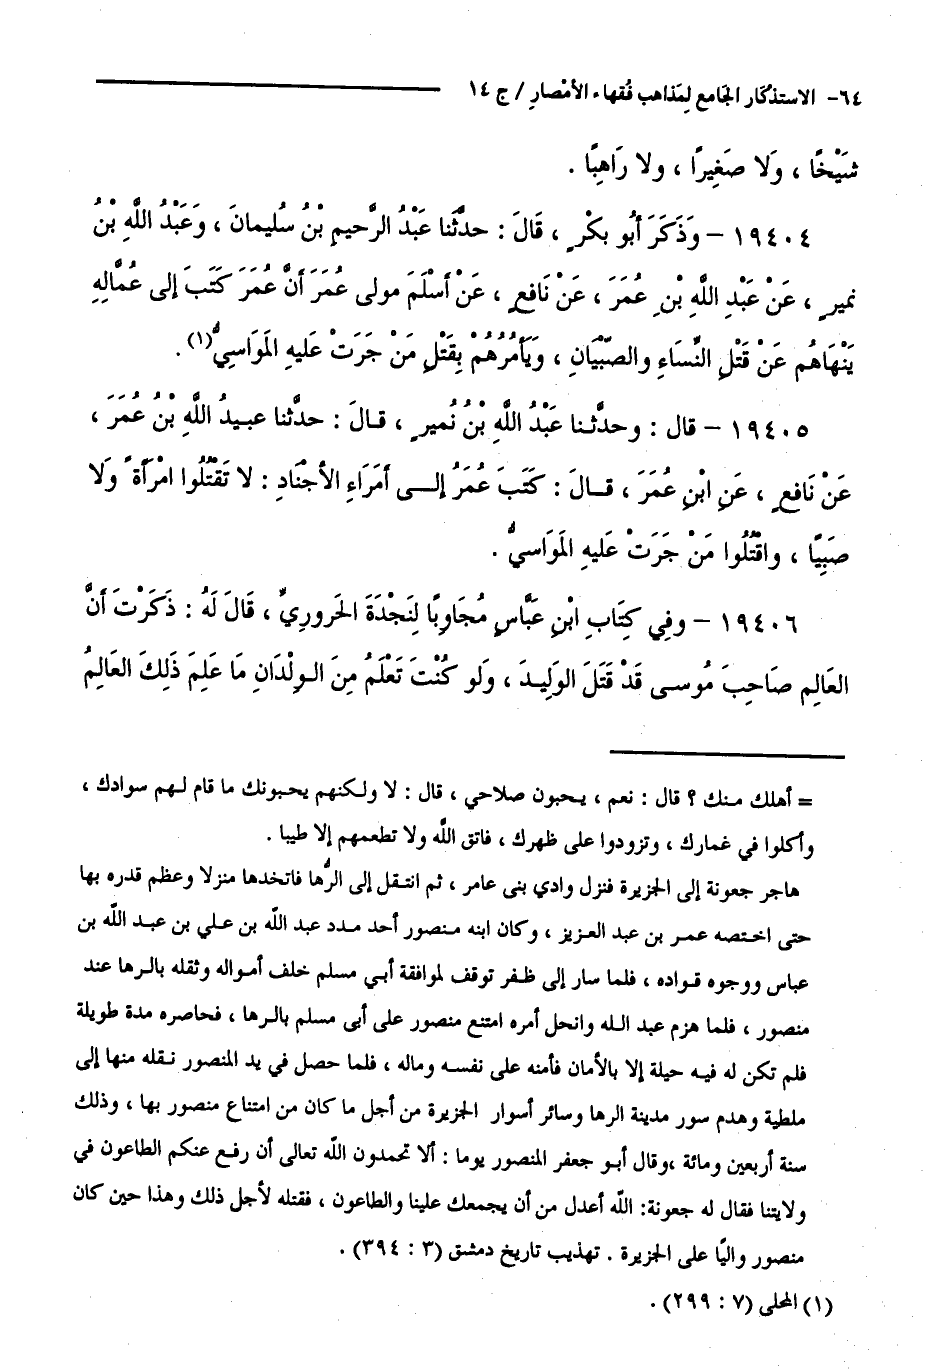 ٦٤- الاستذكار الجامع لِمَذاهب فُقهاء الأمْصار / ج ١٤
شَيْخًا ، وَلا صَغِيرًا ، ولا رَاهِبًا .
١٩٤٠٤ – وَذَكَرَ أبُو بكْرٍ ، قَالَ : حدثَّنا عَبْدُ الرَّحيمِ بْنُ سُليمانَ ، وَعَبْدُ اللَّهِ بْنُ
نميرٍ ، عَنْ عَبْدِ اللَّهِ بْنِ عُمَرَ ، عَنْ نَافعٍ ، عَنْ أسْلَمَ مولى عُمَرَ أنَّ عُمَرَ كَتَبَ إلى عُمَّالِهِ
يَنْهَاهُم عَنْ قَتْلِ النِّسَاءِ والصِّبْيَانِ ، وَيَأمُرُهُمْ بِقَتْلِ مَنْ جَرَتْ عَليهِ المَوَاسِيُّ(١) .
١٩٤٠٥ – قال : وحدثَّنا عَبْدُ اللَّهِ بْنُ نُميرٍ ، قالَ : حدثَّنا عبيدُ اللَّهِ بْنُ عُمَرَ ،
عَنْ نَافعٍ ، عَنِ ابْنِ عُمَرَ ، قالَ : كَتَبَ عُمَرُ إلى أمَرَاءِ الأجْنَادِ : لا تَقْتُلُوا امْرأةً ولَا
صَبِيًا ، واقْتُلُوا مَنْ جَرَتْ عَليهِ المَوَاسيُّ .
١٩٤٠٦ – وفِي كِتَابِ ابْنِ عَبَّاسٍ مُجَاوِبًا لِنَجْدَةَ الحَروريِّ ، قَالَ لَهُ : ذَكَرْتَ أنَّ
العَالِم صَاحِبَ مُوسى قَدْ قَتَلَ الوَلِيدَ ، ولَو كُنْتَ تَعْلَمُ مِنَ الوِلْدَانِ مَا عَلِمَ ذَلِكَ العَالِمُ
= أهلك منك ؟ قال : نعم ، يحبون صلاحي ، قال : لا ولكنهم يحبونك ما قام لهم سوادك ،
وأكلوا في غمارك ، وتزودوا على ظهرك ، فاتق اللَّه ولا تطعمهم إلا طيبا .
هاجر جعونة إلى الجزيرة فنزل وادي بنى عامر ، ثم انتقل إلى الرُّها فاتخدها منزلا وعظم قدره بها
حتى اختصه عمر بن عبد العزيز ، وكان ابنه منصور أحد مدد عبد اللَّه بن علي بن عبد اللَّه بن
عباس ووجوه قواده ، فلما سار إلى ظفر توقف لموافقة أبي مسلم خلف أمواله وثقله بالرها عند
منصور ، فلما هزم عبد الله وانحل أمره امتنع منصور على أبى مسلم بالرها ، فحاصره مدة طويلة
فلم تكن له فيه حيلة إلا بالأمان فأمنه على نفسه وماله ، فلما حصل في يد المنصور نقله منها إلى
ملطية وهدم سور مدينة الرها وسائر أسوار الجزيرة من أجل ما كان من امتناع منصور بها ، وذلك
سنة أربعين ومائة ،وقال أبو جعفر المنصور يوما : ألا تحمدون اللَّه تعالى أن رفع عنكم الطاعون في
ولايتنا فقال له جعونة: اللَّه أعدل من أن يجمعك علينا والطاعون ، فقتله لأجل ذلك وهذا حين كان
منصور واليًا على الجزيرة . تهذيب تاريخ دمشق (٣ : ٣٩٤) .
(١) المحلى (٧ : ٢٩٩) .